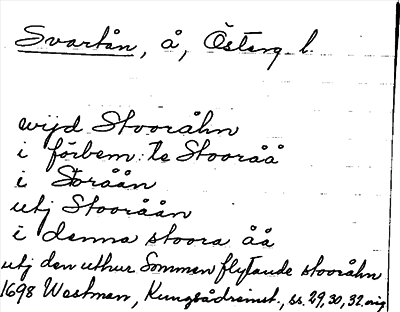 Svartån, å, Österg l.
wijd Stooråhn
i förbem:te Stooråå
i Storåån
utj Stooråån
i denna stoora åå
utj den uthur Sommen flytande stooråhn
1698 Westman, Kungsådreinst., ss. 29, 30, 32. orig